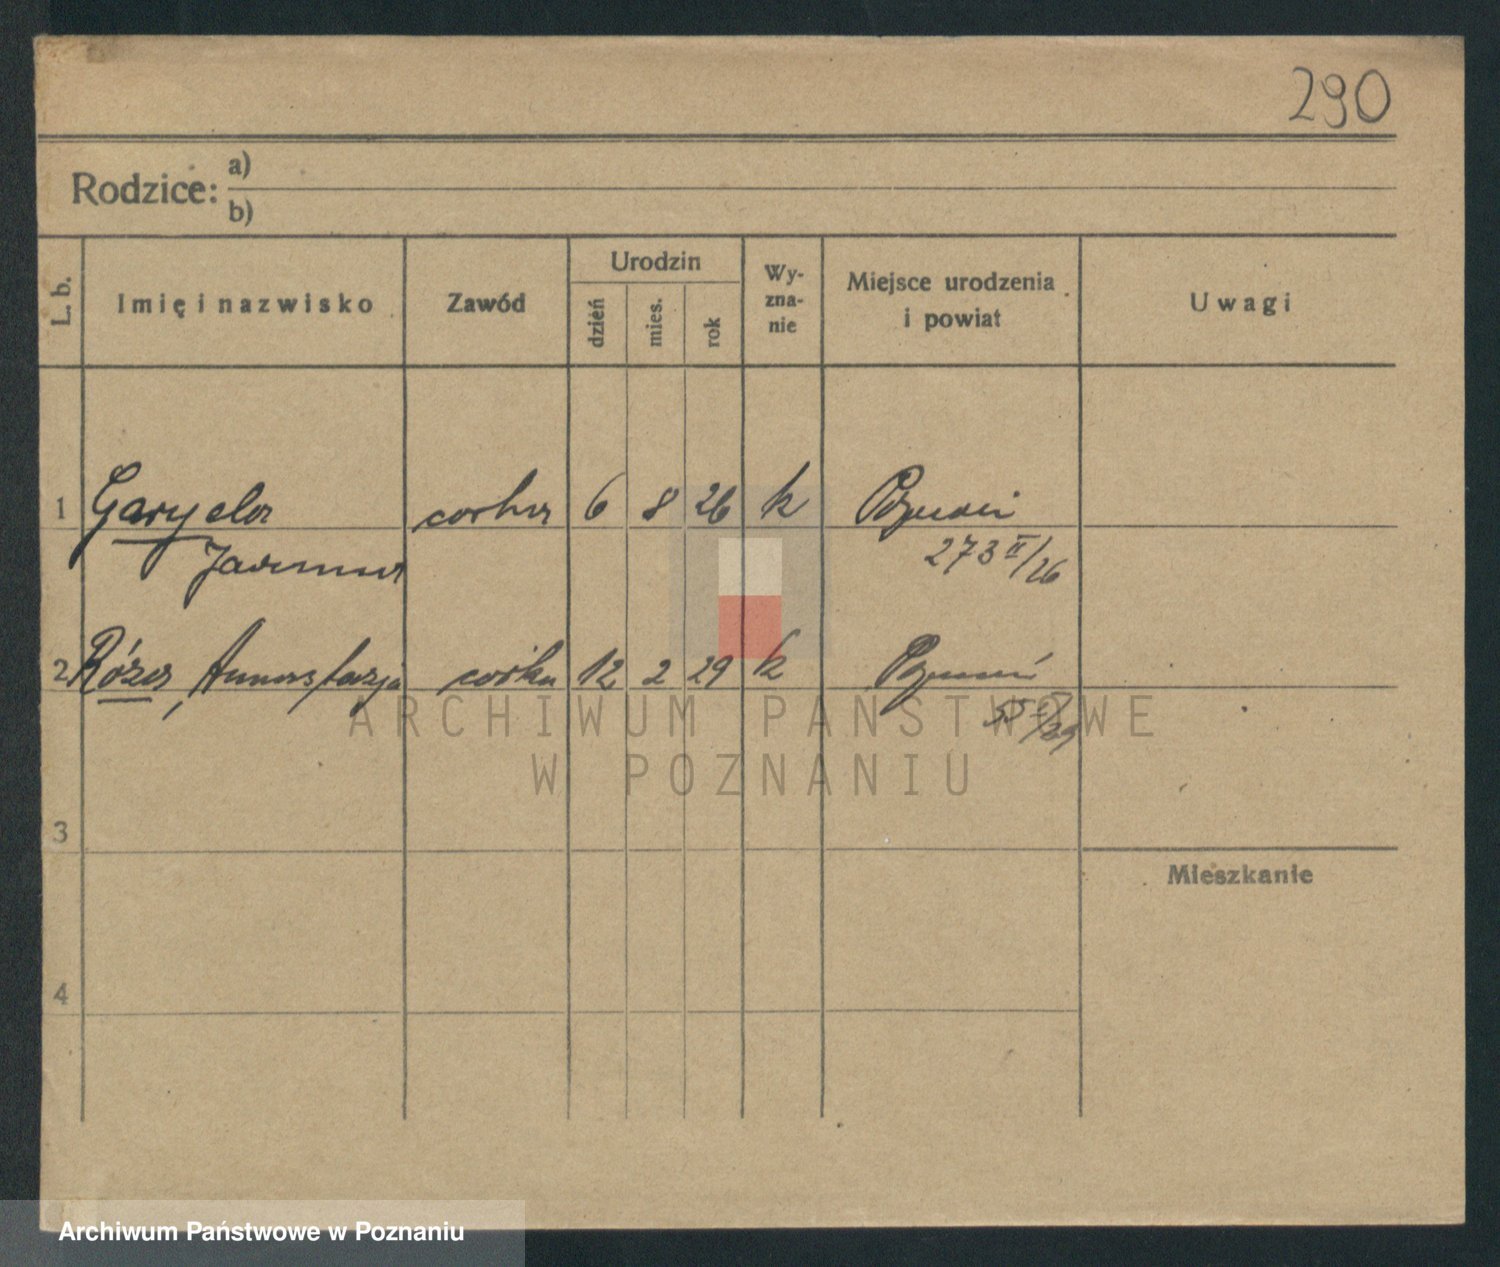 290
Rodzice: a)
b)
L. b.
Imię i nazwisko
Zawód
Urodzin
dzień
mies.
rok
Wy-
zna-
nie
Miejsce urodzenia
i powiat
Uwagi
1 córka 6 8 26 k Poznań
273 II/26
2 Róża, Anastazja córka 12 2 29 k Poznań
55 /29
3
Mieszkanie
4
ARCHIWUM PAŃSTWOWE
W POZNANIU
Archiwum Państwowe w Poznaniu